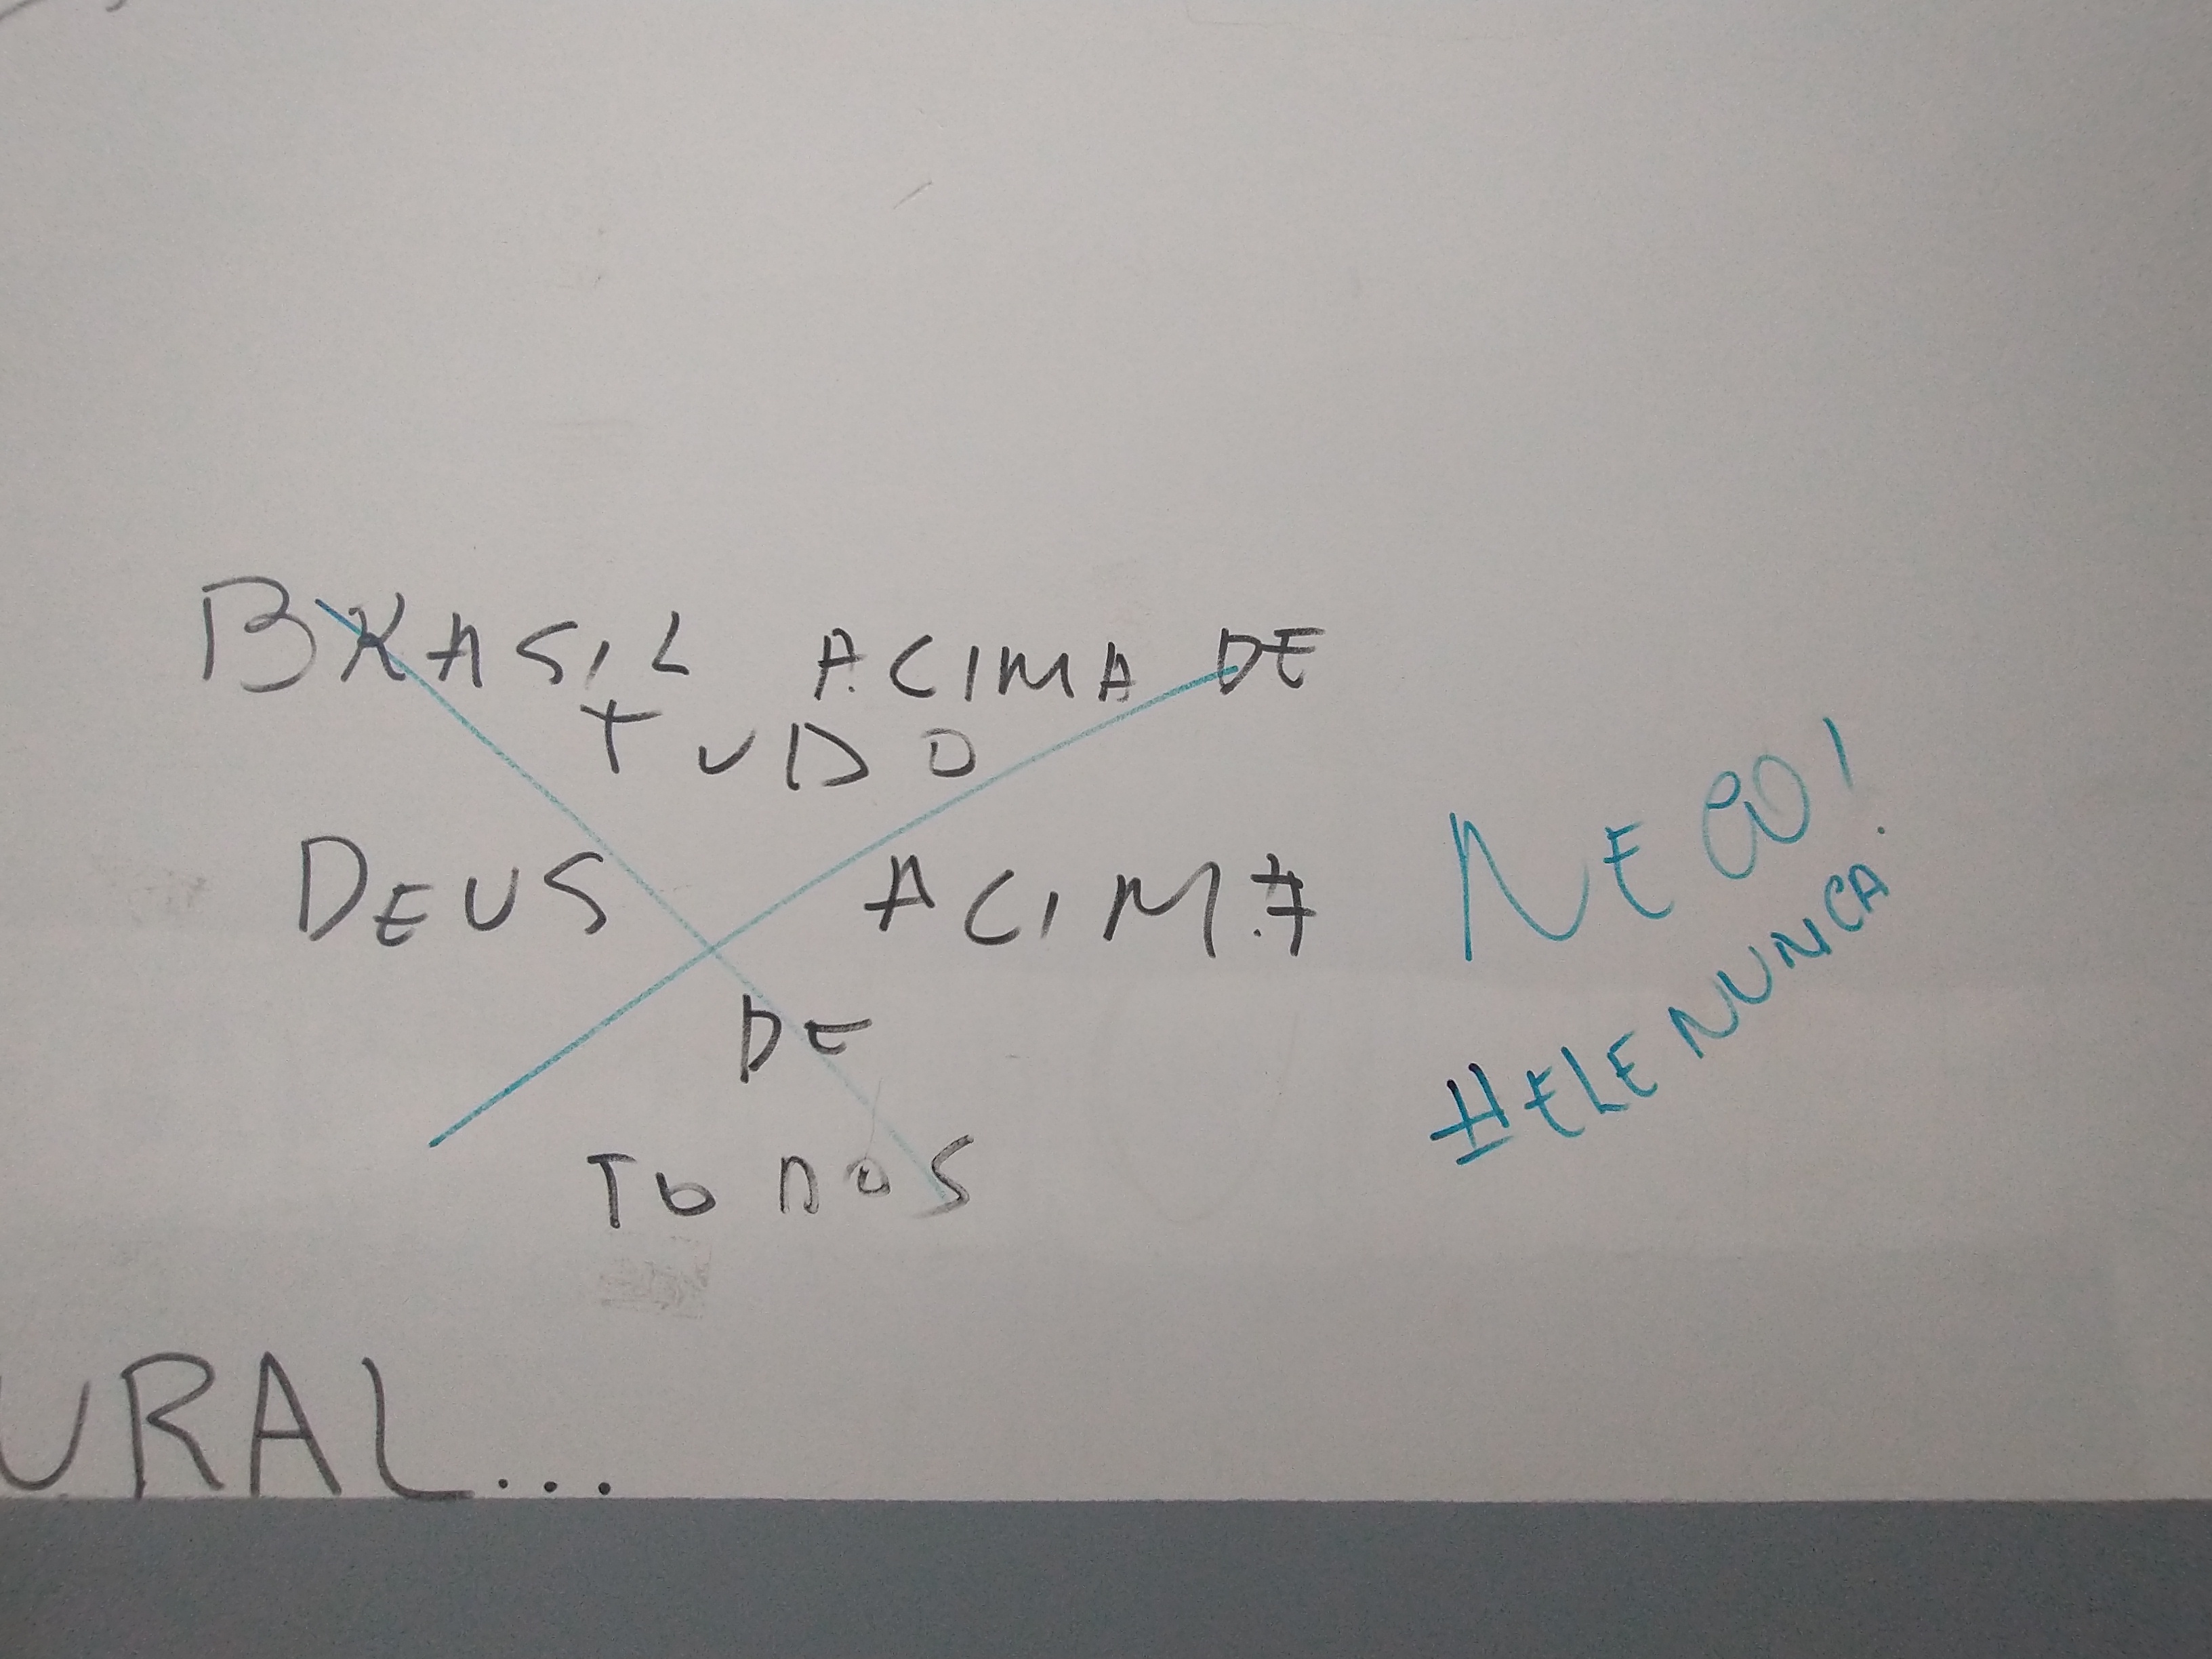 BRASIL ACIMA DE
TUDO
DEUS ACIMA
DE
TODOS
NEGO!
#ELE NUNCA
URAL...